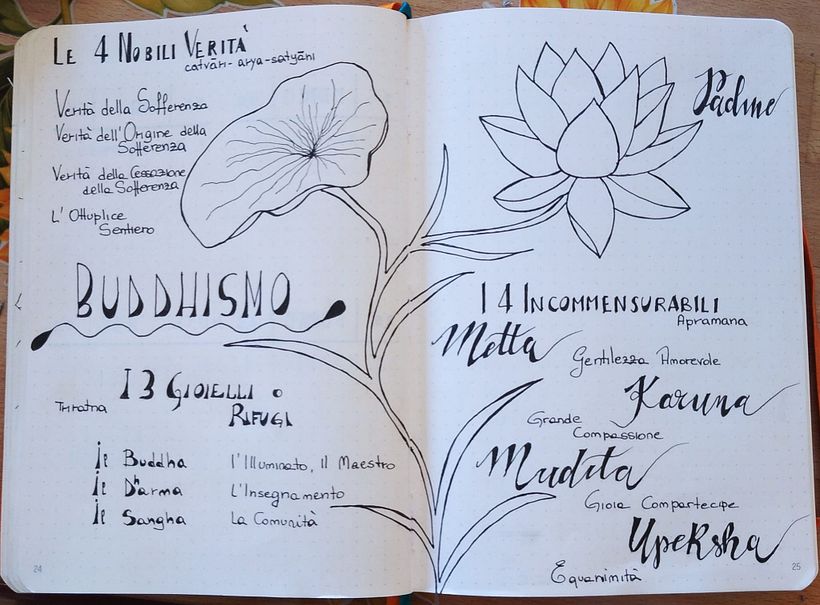 Le 4 Nobili Verità
catvāri-arya-satyāni
Verità della Sofferenza
Verità dell'Origine della
Sofferenza
Verità della Cessazione
della Sofferenza
L'Ottuplice
Sentiero
BUDDHISMO
I 3 Gioielli o
Rifugi
Triratna
il Buddha l'Illuminato, il Maestro
il Dharma L'Insegnamento
il Sangha La Comunità
24
Padme
I 4 Incommensurabili
Apramana
Metta
Gentilezza Amorevole
Karuna
Grande
Compassione
Mudita
Gioia Compartecipe
Upeksha
Equanimità
25